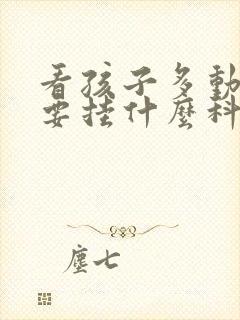 看孩子多動
要挂什麼科
塵七